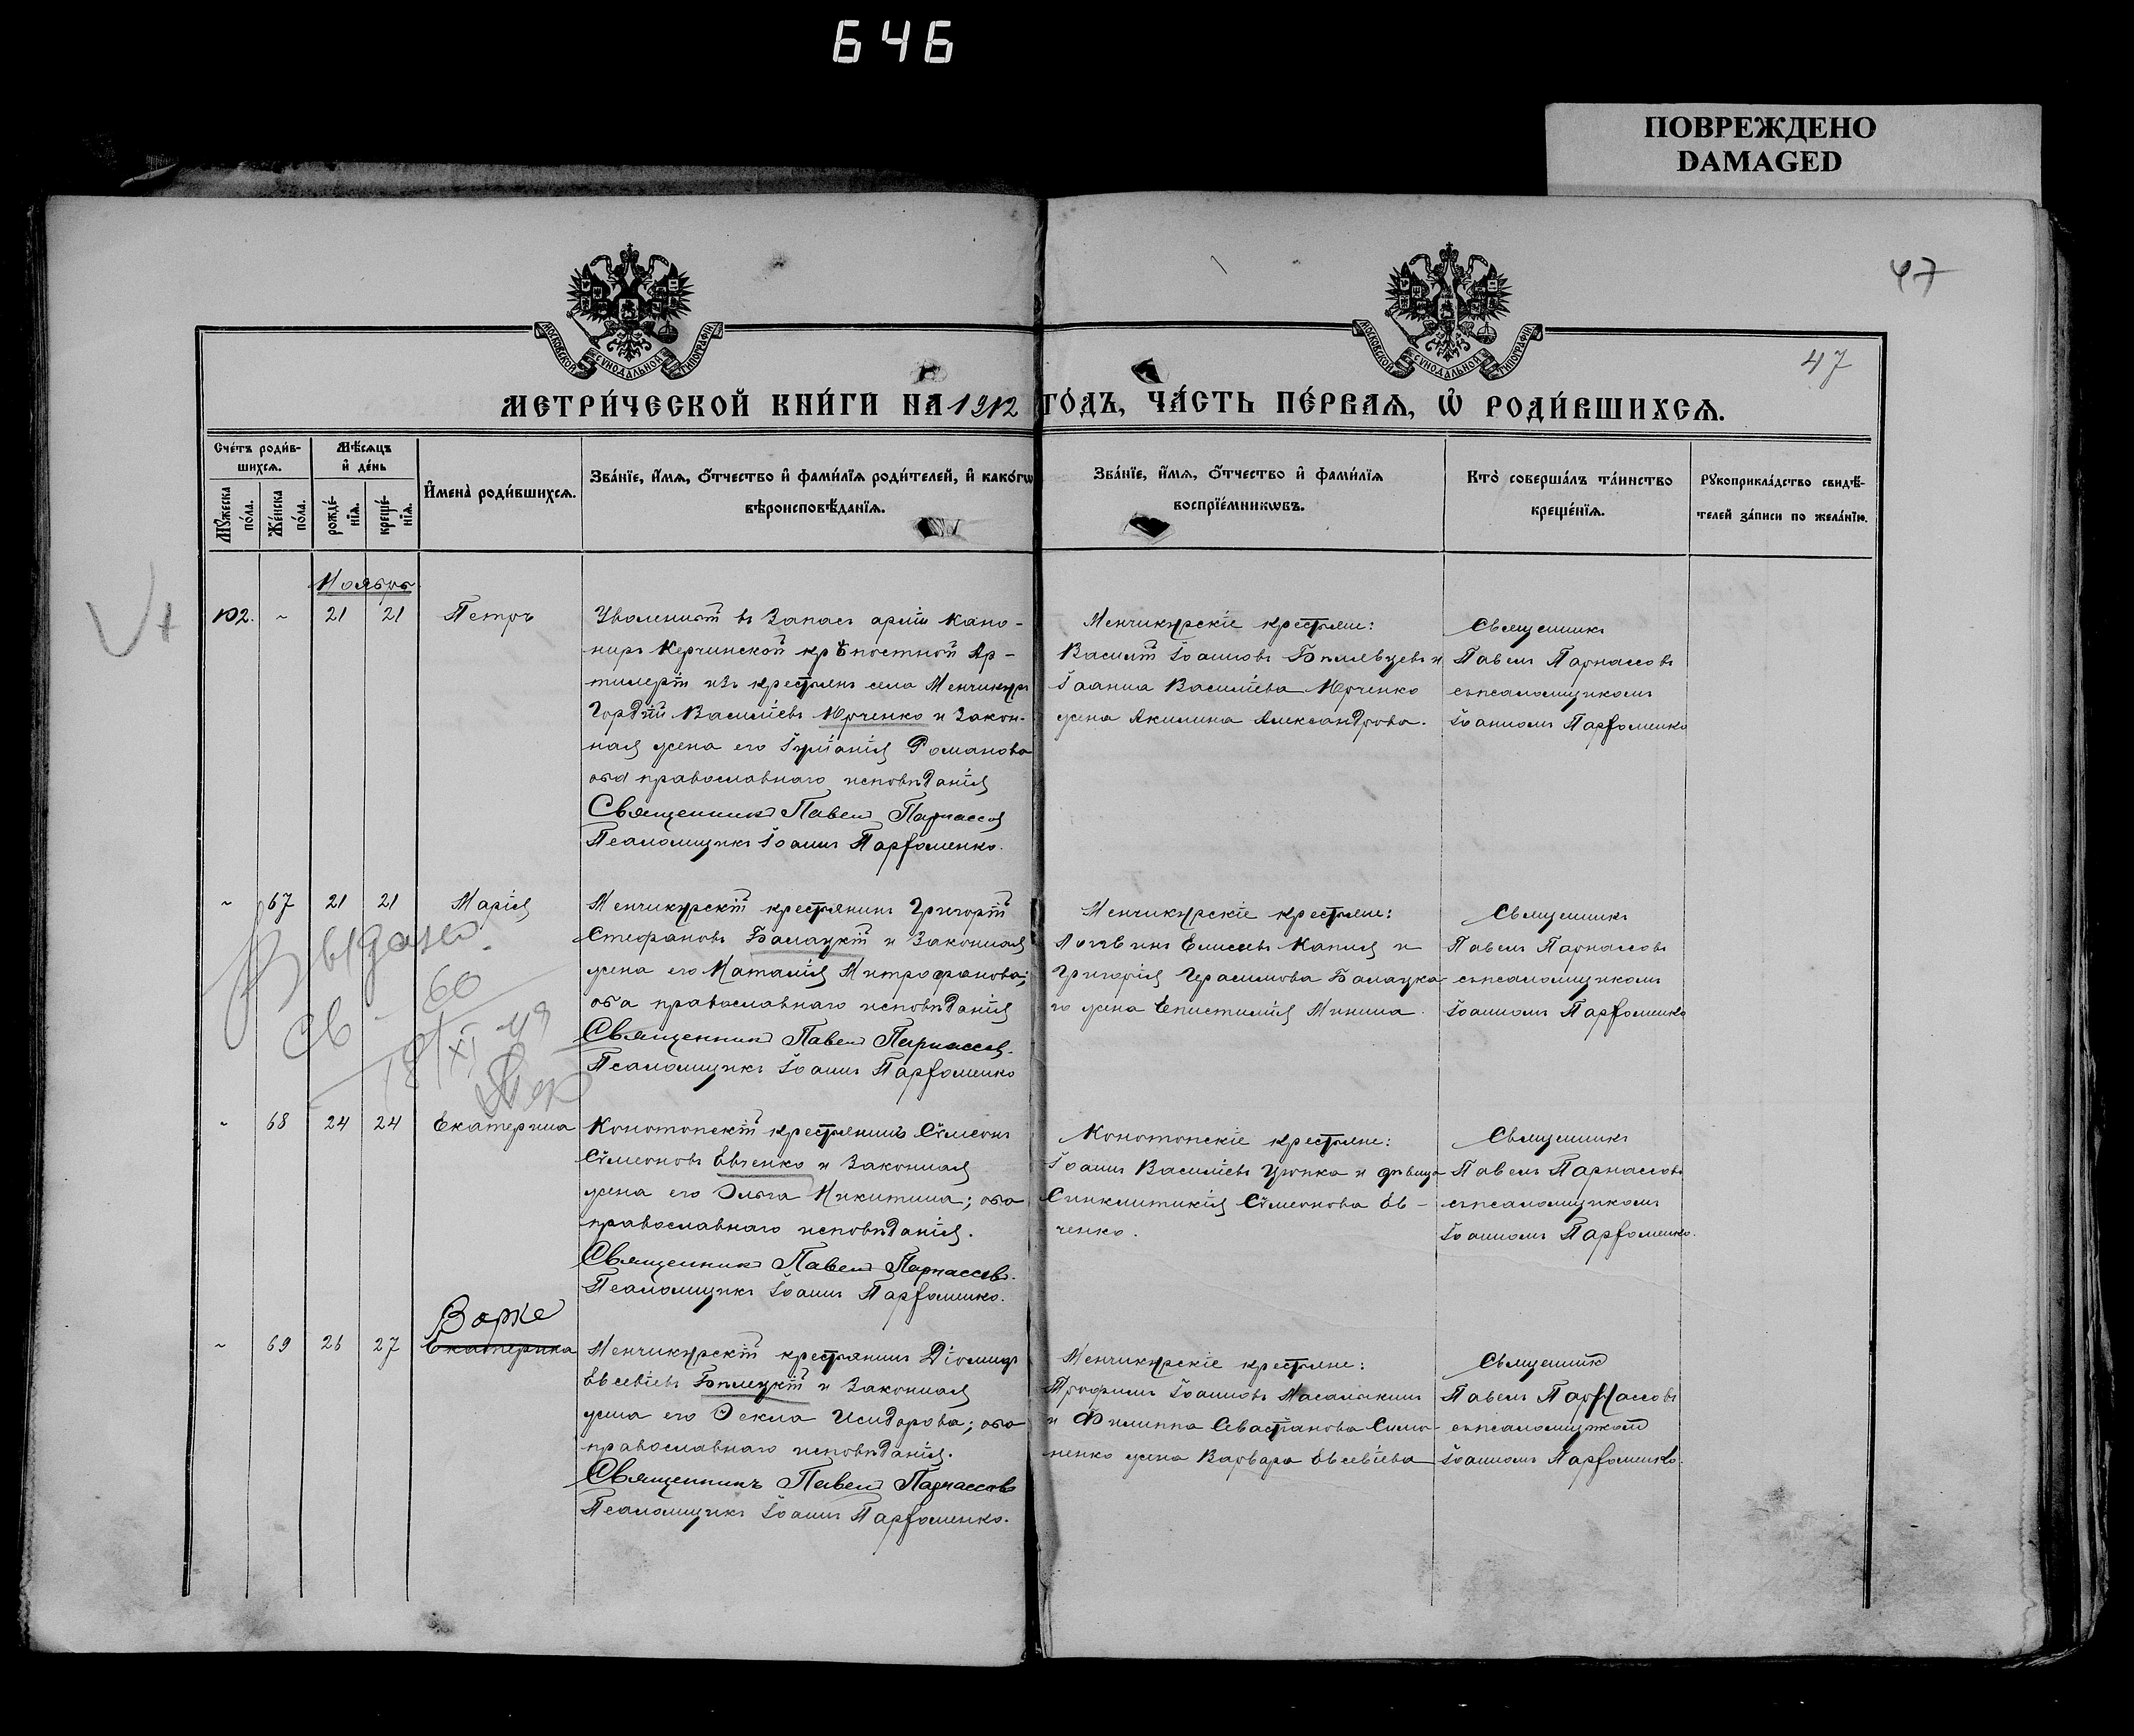 646
ПОВРЕЖДЕНО
DAMAGED
47
47
МОСКОВСКОЙ СУНОДАЛЬНОЙ ТИПОГРАФІИ
МОСКОВСКОЙ СУНОДАЛЬНОЙ ТИПОГРАФІИ
МЕТРИ́ЧЕСКОЙ КНИ́ГИ НА 1912 ГО́ДЪ, ЧА́СТЬ ПЕ́РВАѦ, Ѡ҆ РОДИ́ВШИХСѦ.
Сче́тъ роди́в-
шихсѧ.
Мꙋжеска по́ла.
Же́нска по́ла.
Мѣ́сѧцъ
и҆ де́нь
рожде́-
нїѧ.
креще́-
нїѧ.
И҆мена̀ роди́вшихсѧ.
Зва́нїе, и҆́мѧ, ѻ҆́тчество и҆ фами́лїѧ роди́телей, и҆ како́гѡ
вѣроисповѣ́данїѧ.
Зва́нїе, и҆́мѧ, ѻ҆́тчество и҆ фами́лїѧ
воспрїе́мникѡвъ.
Кто̀ соверша́лъ та́инство
креще́нїѧ.
Рꙋкоприкла́дство свидѣ́-
телей за́писи по жела́нїю.
Ноябрь
102. ~ 21 21 Петръ
Уволенный въ Запасъ арміи Кано-
ниръ Керчинской крѣпостной Ар-
тилеріи изъ крестьянъ села Менчикуръ
Гордій Василіевъ Юрченко и Закон-
ная жена его Іуліанія Романова
оба православнаго исповѣданія
Священникъ Павелъ Парнассовъ
Псаломщикъ Іоаннъ Парфоменко.
Менчикурскіе крестьяне:
Василій Іоанновъ Бѣлявцевъ и
Іоанна Василіева Юрченко
жена Акилина Александрова.
Священникъ
Павелъ Парнассовъ
съ псаломщикомъ
Іоанномъ Парфоменко
~ 67 21 21 Марія
Менчикурскій крестьянинъ Григорій
Стефановъ Балацкій и Законная
жена его Наталія Митрофанова;
оба православнаго исповѣданія
Священникъ Павелъ Парнассовъ.
Псаломщикъ Іоаннъ Парфоменко
Менчикурскіе крестьяне:
Логвинъ Елисеевъ Капля и
Григорія Герасимова Балацка-
го жена Епистимія Минина.
Священникъ
Павелъ Парнассовъ
съ псаломщикомъ
Іоанномъ Парфоменко
Выдано
св - 60
18/XI 49
~ 68 24 24 Екатерина
Конотопскій крестьянинъ Сѵмеонъ
Сѵмеоновъ Евченко и Законная
жена его Ольга Никитина; оба
православнаго исповѣданія.
Священникъ Павелъ Парнассовъ.
Псаломщикъ Іоаннъ Парфоменко.
Конотопскіе крестьяне:
Іоаннъ Василіевъ Цюпка и дѣвица
Синклитикія Сѵмеонова Ев-
ченко.
Священникъ
Павелъ Парнассовъ
съ псаломщикомъ
Іоанномъ Парфоменко.
~ 69 26 27 Екатерина
Менчикурскій крестьянинъ Діомидъ
Евсевіевъ Бѣлецкій и Законная
жена его Ѳекла Исидорова; оба
православнаго исповѣданія.
Священникъ Павелъ Парнассовъ
Псаломщикъ Іоаннъ Парфоменко.
Менчикурскіе крестьяне:
Трофимъ Іоанновъ Масалыкинъ
и Филиппа Севастіанова Симо-
ненко жена Варвара Евсевіева
Священникъ
Павелъ Парнассовъ
съ псаломщикомъ
Іоанномъ Парфоменко.